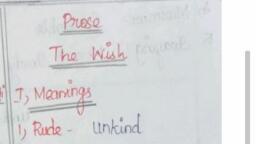 Prose
The Wish
I, Meanings
1, Rude - unkind